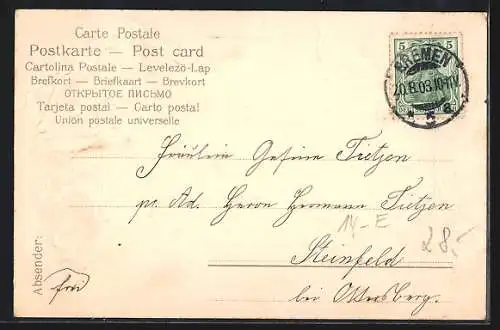 Carte Postale
Postkarte — Post card
Cartolina Postale — Levelező-Lap
Brefkort — Briefkaart — Brevkort
ОТКРЫТОЕ ПИСЬМО
Tarjeta postal — Carto postal
Union postale universelle
5 5
BREMEN
20.8.03.10-11V
* * a
Fräulein Gesine Tietjen
pr. Ad. Herrn Hermann Tietjen
14-E
28,-
Steinfeld
bei Ottersberg.
Absender:
frei